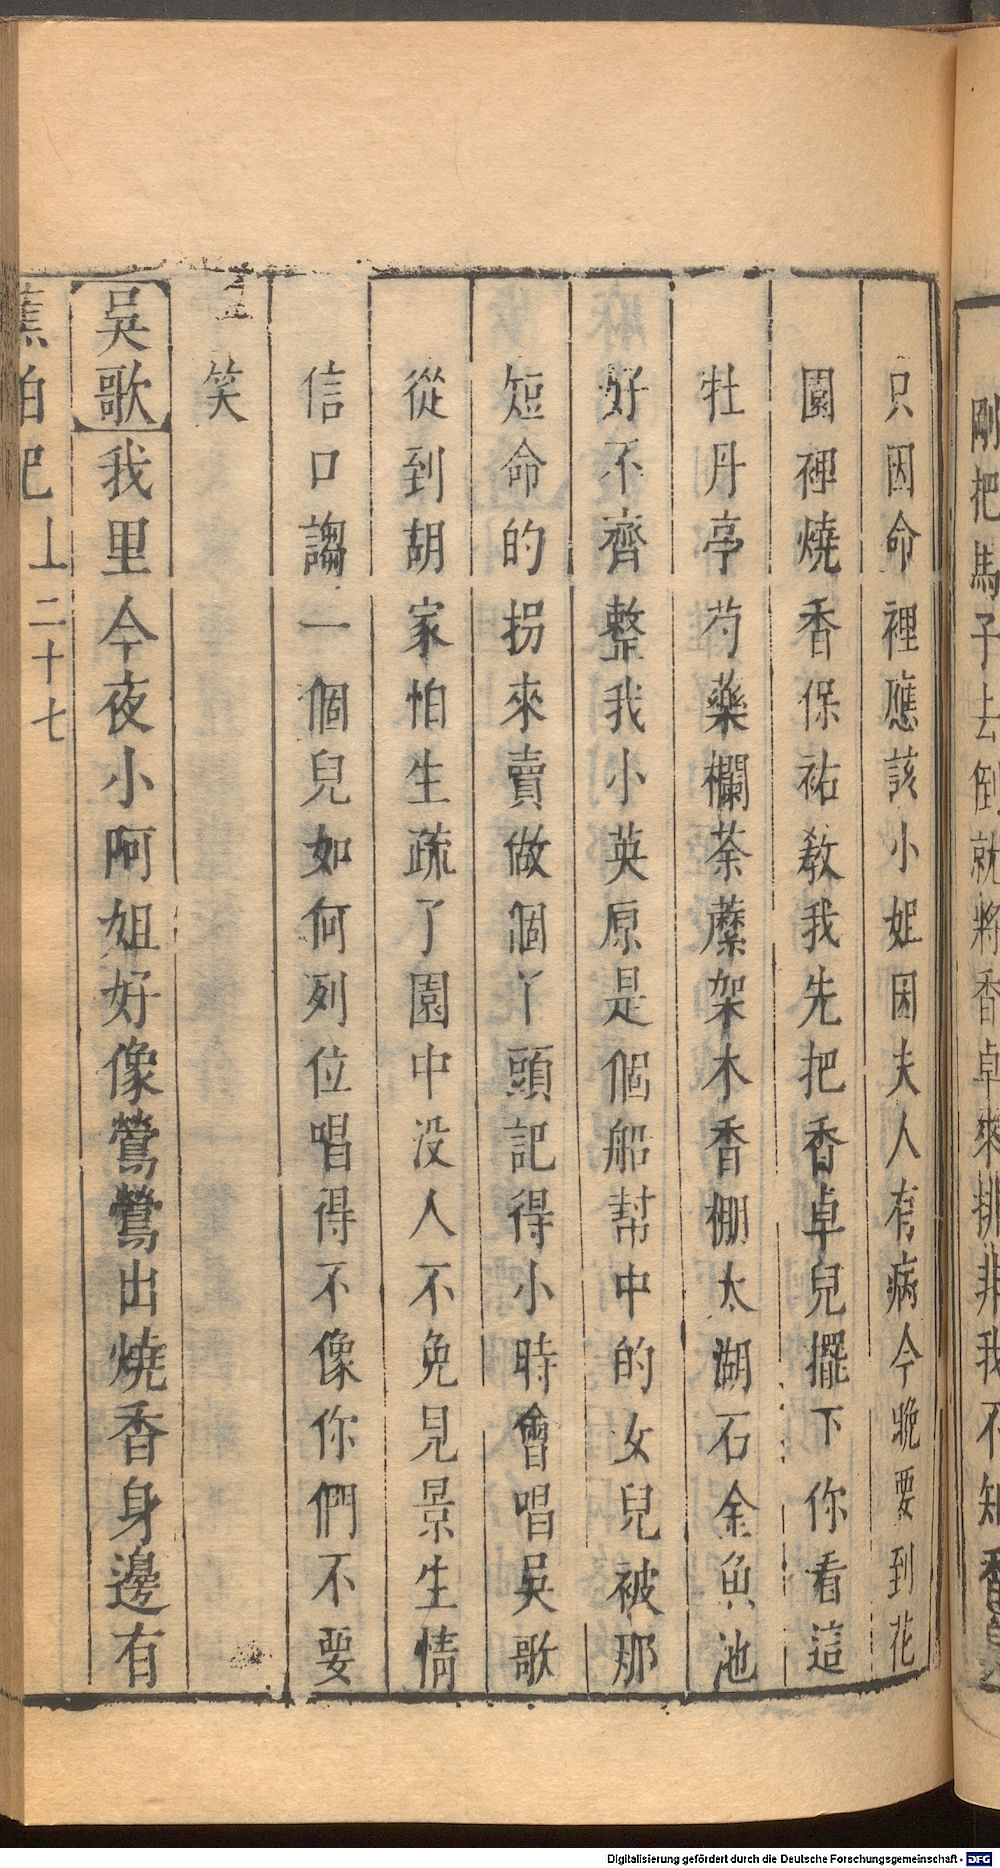 剛把馬子去倒就將香卓來排非我不知
只因命裡應該小姐因夫人有病今晚要到花
園裡燒香保祐教我先把香卓兒擺下你看這
牡丹亭芍藥欄荼蘼架木香棚太湖石金魚池
好不齊整我小英原是個船幫中的女兒被那
短命的拐來賣做個丫頭記得小時會唱吳歌
從到胡家怕生疏了園中没人不免見景生情
信口謅一個兒如何列位唱得不像你們不要
笑
吳歌我里今夜小阿姐好像鶯鶯出燒香身邊有
蕉帕記上二十七
Digitalisierung gefördert durch die Deutsche Forschungsgemeinschaft - DFG